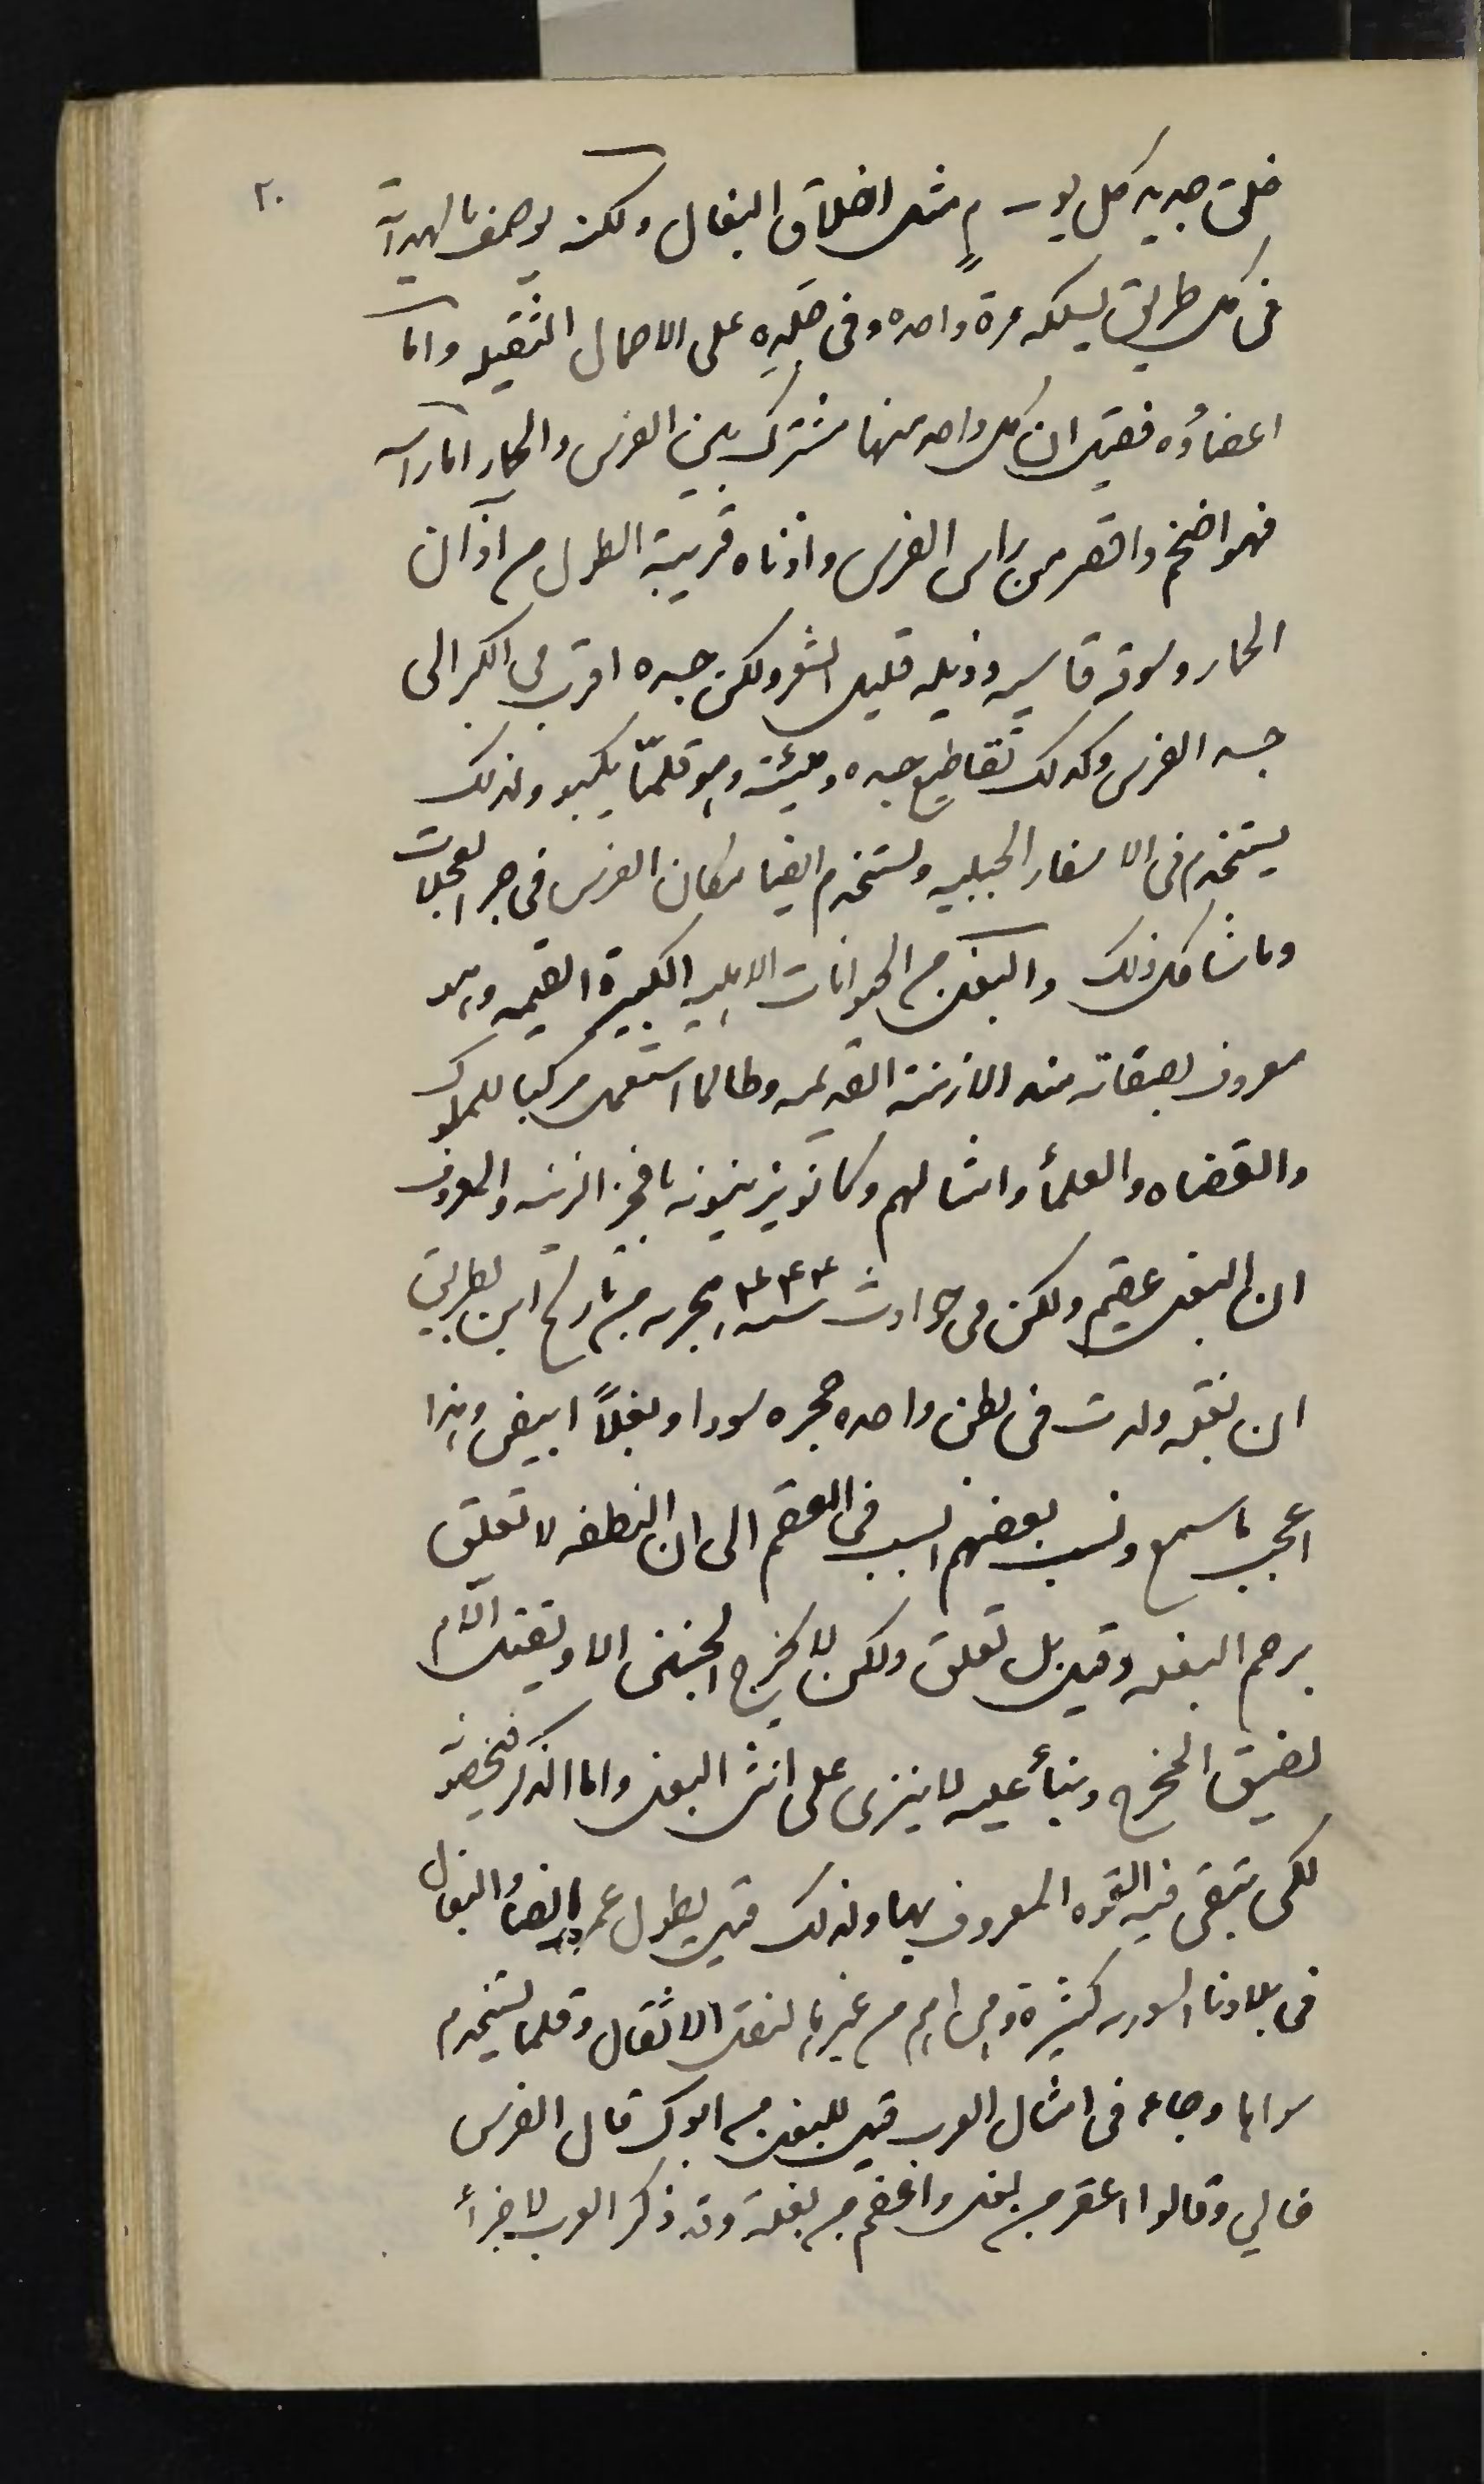 ٢٠
خلق جديد كل يوم مثل اخلاق البغال ولكنه يوصف بالهداية
في كل طريق يسلكه مرة واحده وفي جلَدِه على الاحمال الثقيله واما
اعضاؤه فقيل ان كل واحد منها مشترك بين الفرس والحمار اما راسه
فهو اضخم واقصر من راس الفرس واذناه قريبة الطول من اذان
الحمار وسوقه قاسيه وذيله قليل الشعر ولكن جسده اقرب في الكبر الى
جسد الفرس وكذلك تقاطيع جسده وهيئته وهو قلمّا يكبو ولذلك
يستخدم في الاسفار الجبليه ويستخدم ايضا مكان الفرس في جر العجلات
وما شاكل ذلك والبغل من الحيوانات الاهليه الكبيرة القيمه وهو
معروف بصفاته منذ الازمنة القديمه وطالما استعمل مركبا للملوك
والقضاه والعلمأ وامثالهم وكانو يزينونه بافخر الزينه والمعروف
ان البغل عقيم ولكن في حوادث سنة ٤٤٤ هجريه من تاريخ ابن بطريق
ان بغله ولدت في بطن واحده حجره سودا وبغلاً ابيض وهذا
اعجب ما سمع ونسب بعضهم السبب في العقم الى ان النطفه لا تعلق
برحم البغله وقيل بل تعلق ولكن لا يخرج الجنين الا ويقتل الام
لضيق المخرج وبنأ عليه لا ينزى على انثى البغل واما الذكر فيخصونه
لكي تبقى فيه القوه المعروف بها ولذلك قيل يطول عمره ايضاً والبغال
في بلادنا السوريه كثيرة وهي اهم من غيرها لنقل الاثقال وقلما يستخدم
سواها وجاء في امثال العرب قيل للبغل من ابوك قال الفرس
خالي وقالوا اعقر من بغل واعقم من بغلة وقد ذكر العرب لاجزأ